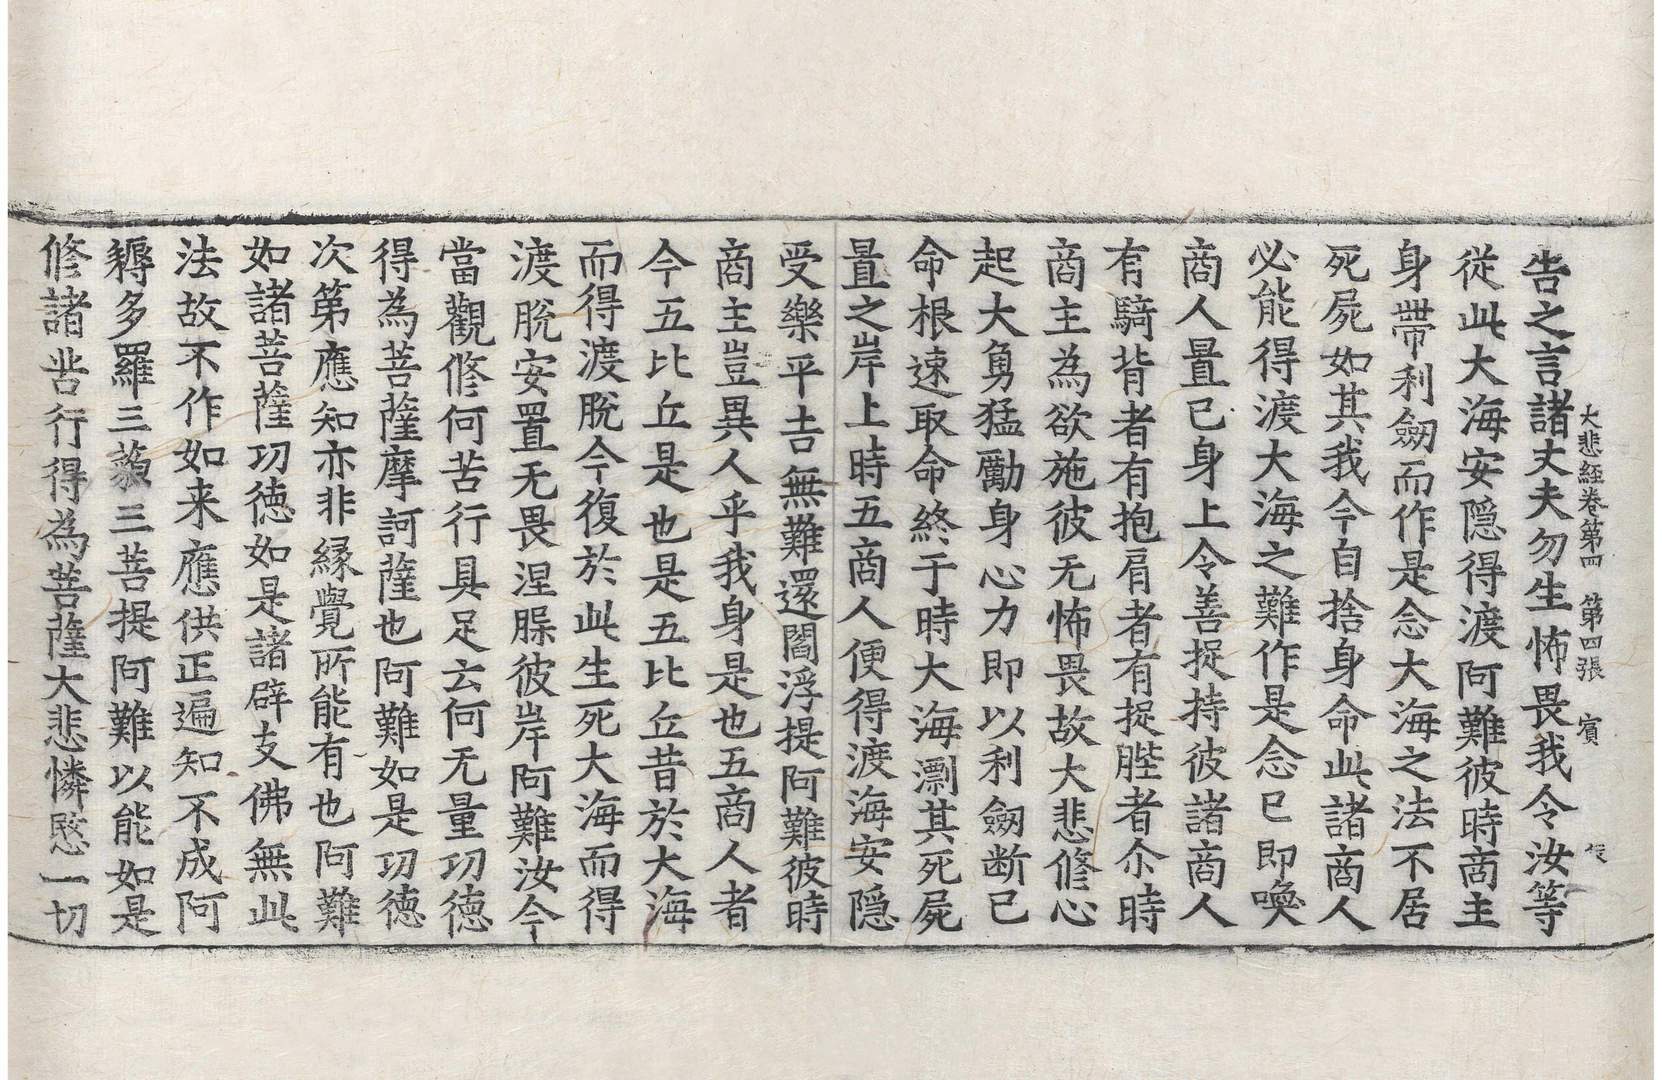 大悲經卷第四　第四張　賓
告之言諸丈夫勿生怖畏我令汝等
從此大海安隱得渡阿難彼時商主
身帶利劒而作是念大海之法不居
死屍如其我今自捨身命此諸商人
必能得渡大海之難作是念已即喚
商人置己身上令善捉持彼諸商人
有騎背者有抱肩者有捉䏶者尒時
商主為欲施彼无怖畏故大悲修心
起大勇猛勵身心力即以利劒断己
命根速取命終于時大海漂其死屍
置之岸上時五商人便得渡海安隱
受樂平吉無難還閻浮提阿難彼時
商主豈異人乎我身是也五商人者
今五比丘是也是五比丘昔於大海
而得渡脫今復於此生死大海而得
渡脫安置无畏涅槃彼岸阿難汝今
當觀修何苦行具足云何无量功德
得為菩薩摩訶薩也阿難如是功德
次第應知亦非緣覺所能有也阿難
如諸菩薩功德如是諸辟支佛無此
法故不作如来應供正遍知不成阿
耨多羅三藐三菩提阿難以能如是
修諸苦行得為菩薩大悲憐愍一切